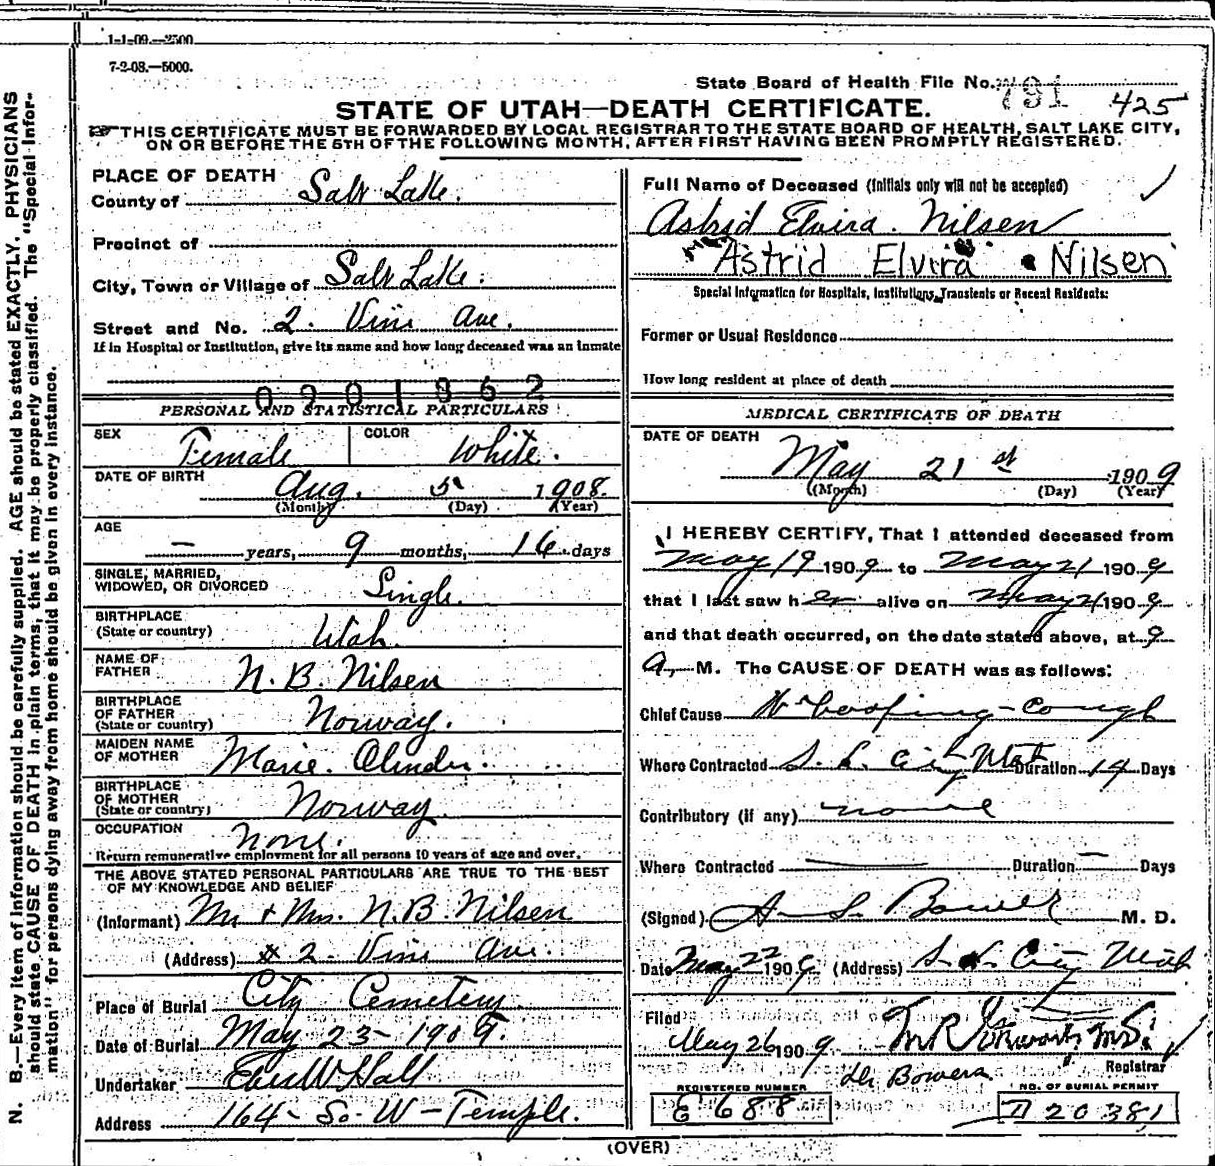 1-1-09.—2500
7-2-08.—5000.
State Board of Health File No. 791 425
STATE OF UTAH—DEATH CERTIFICATE.
THIS CERTIFICATE MUST BE FORWARDED BY LOCAL REGISTRAR TO THE STATE BOARD OF HEALTH, SALT LAKE CITY,
ON OR BEFORE THE 5TH OF THE FOLLOWING MONTH, AFTER FIRST HAVING BEEN PROMPTLY REGISTERED.
N. B.—Every item of information should be carefully supplied. AGE should be stated EXACTLY. PHYSICIANS
should state CAUSE OF DEATH in plain terms, that it may be properly classified. The "Special Infor-
mation" for persons dying away from home should be given in every instance.
PLACE OF DEATH
County of Salt Lake.
Precinct of
City, Town or Village of Salt Lake.
Street and No. 2. Vini Ave.
If in Hospital or Institution, give its name and how long deceased was an inmate
0901862
PERSONAL AND STATISTICAL PARTICULARS
SEX Female COLOR White.
DATE OF BIRTH Aug. 5 1908.
(Month) (Day) (Year)
AGE
— years, 9 months, 16 days
SINGLE, MARRIED,
WIDOWED, OR DIVORCED Single.
BIRTHPLACE
(State or country) Utah.
NAME OF
FATHER N. B. Nilsen
BIRTHPLACE
OF FATHER
(State or country) Norway.
MAIDEN NAME
OF MOTHER Marie.
BIRTHPLACE
OF MOTHER
(State or country) Norway
OCCUPATION None.
Return remunerative employment for all persons 10 years of age and over.
THE ABOVE STATED PERSONAL PARTICULARS ARE TRUE TO THE BEST
OF MY KNOWLEDGE AND BELIEF
(Informant) Mr & Mrs. N. B. Nilsen
(Address) # 2. Vini Ave.
Place of Burial City Cemetery
Date of Burial May 23—1909.
Undertaker Eber W Hall
Address 164—So. W—Temple.
Full Name of Deceased (Initials only will not be accepted)
Astrid Elvira. Nilsen
Astrid Elvira Nilsen
Special Information for Hospitals, Institutions, Transients or Recent Residents:
Former or Usual Residence
How long resident at place of death
MEDICAL CERTIFICATE OF DEATH
DATE OF DEATH
May 21st 1909
(Month) (Day) (Year)
I HEREBY CERTIFY, That I attended deceased from
May 19 1909 to May 21 1909
that I last saw her alive on May 21 1909
and that death occurred, on the date stated above, at 9
a. M. The CAUSE OF DEATH was as follows:
Chief Cause Whooping-Cough
Where Contracted S. L. City Utah Duration 14 Days
Contributory (if any) none
Where Contracted — Duration — Days
(Signed) A. S. Bower M. D.
Date May 22 1909 (Address) S. L. City Utah
Filed
May 26 1909
Registrar
Dr Bowers
REGISTERED NUMBER
E 688
NO. OF BURIAL PERMIT
D 20381
(OVER)